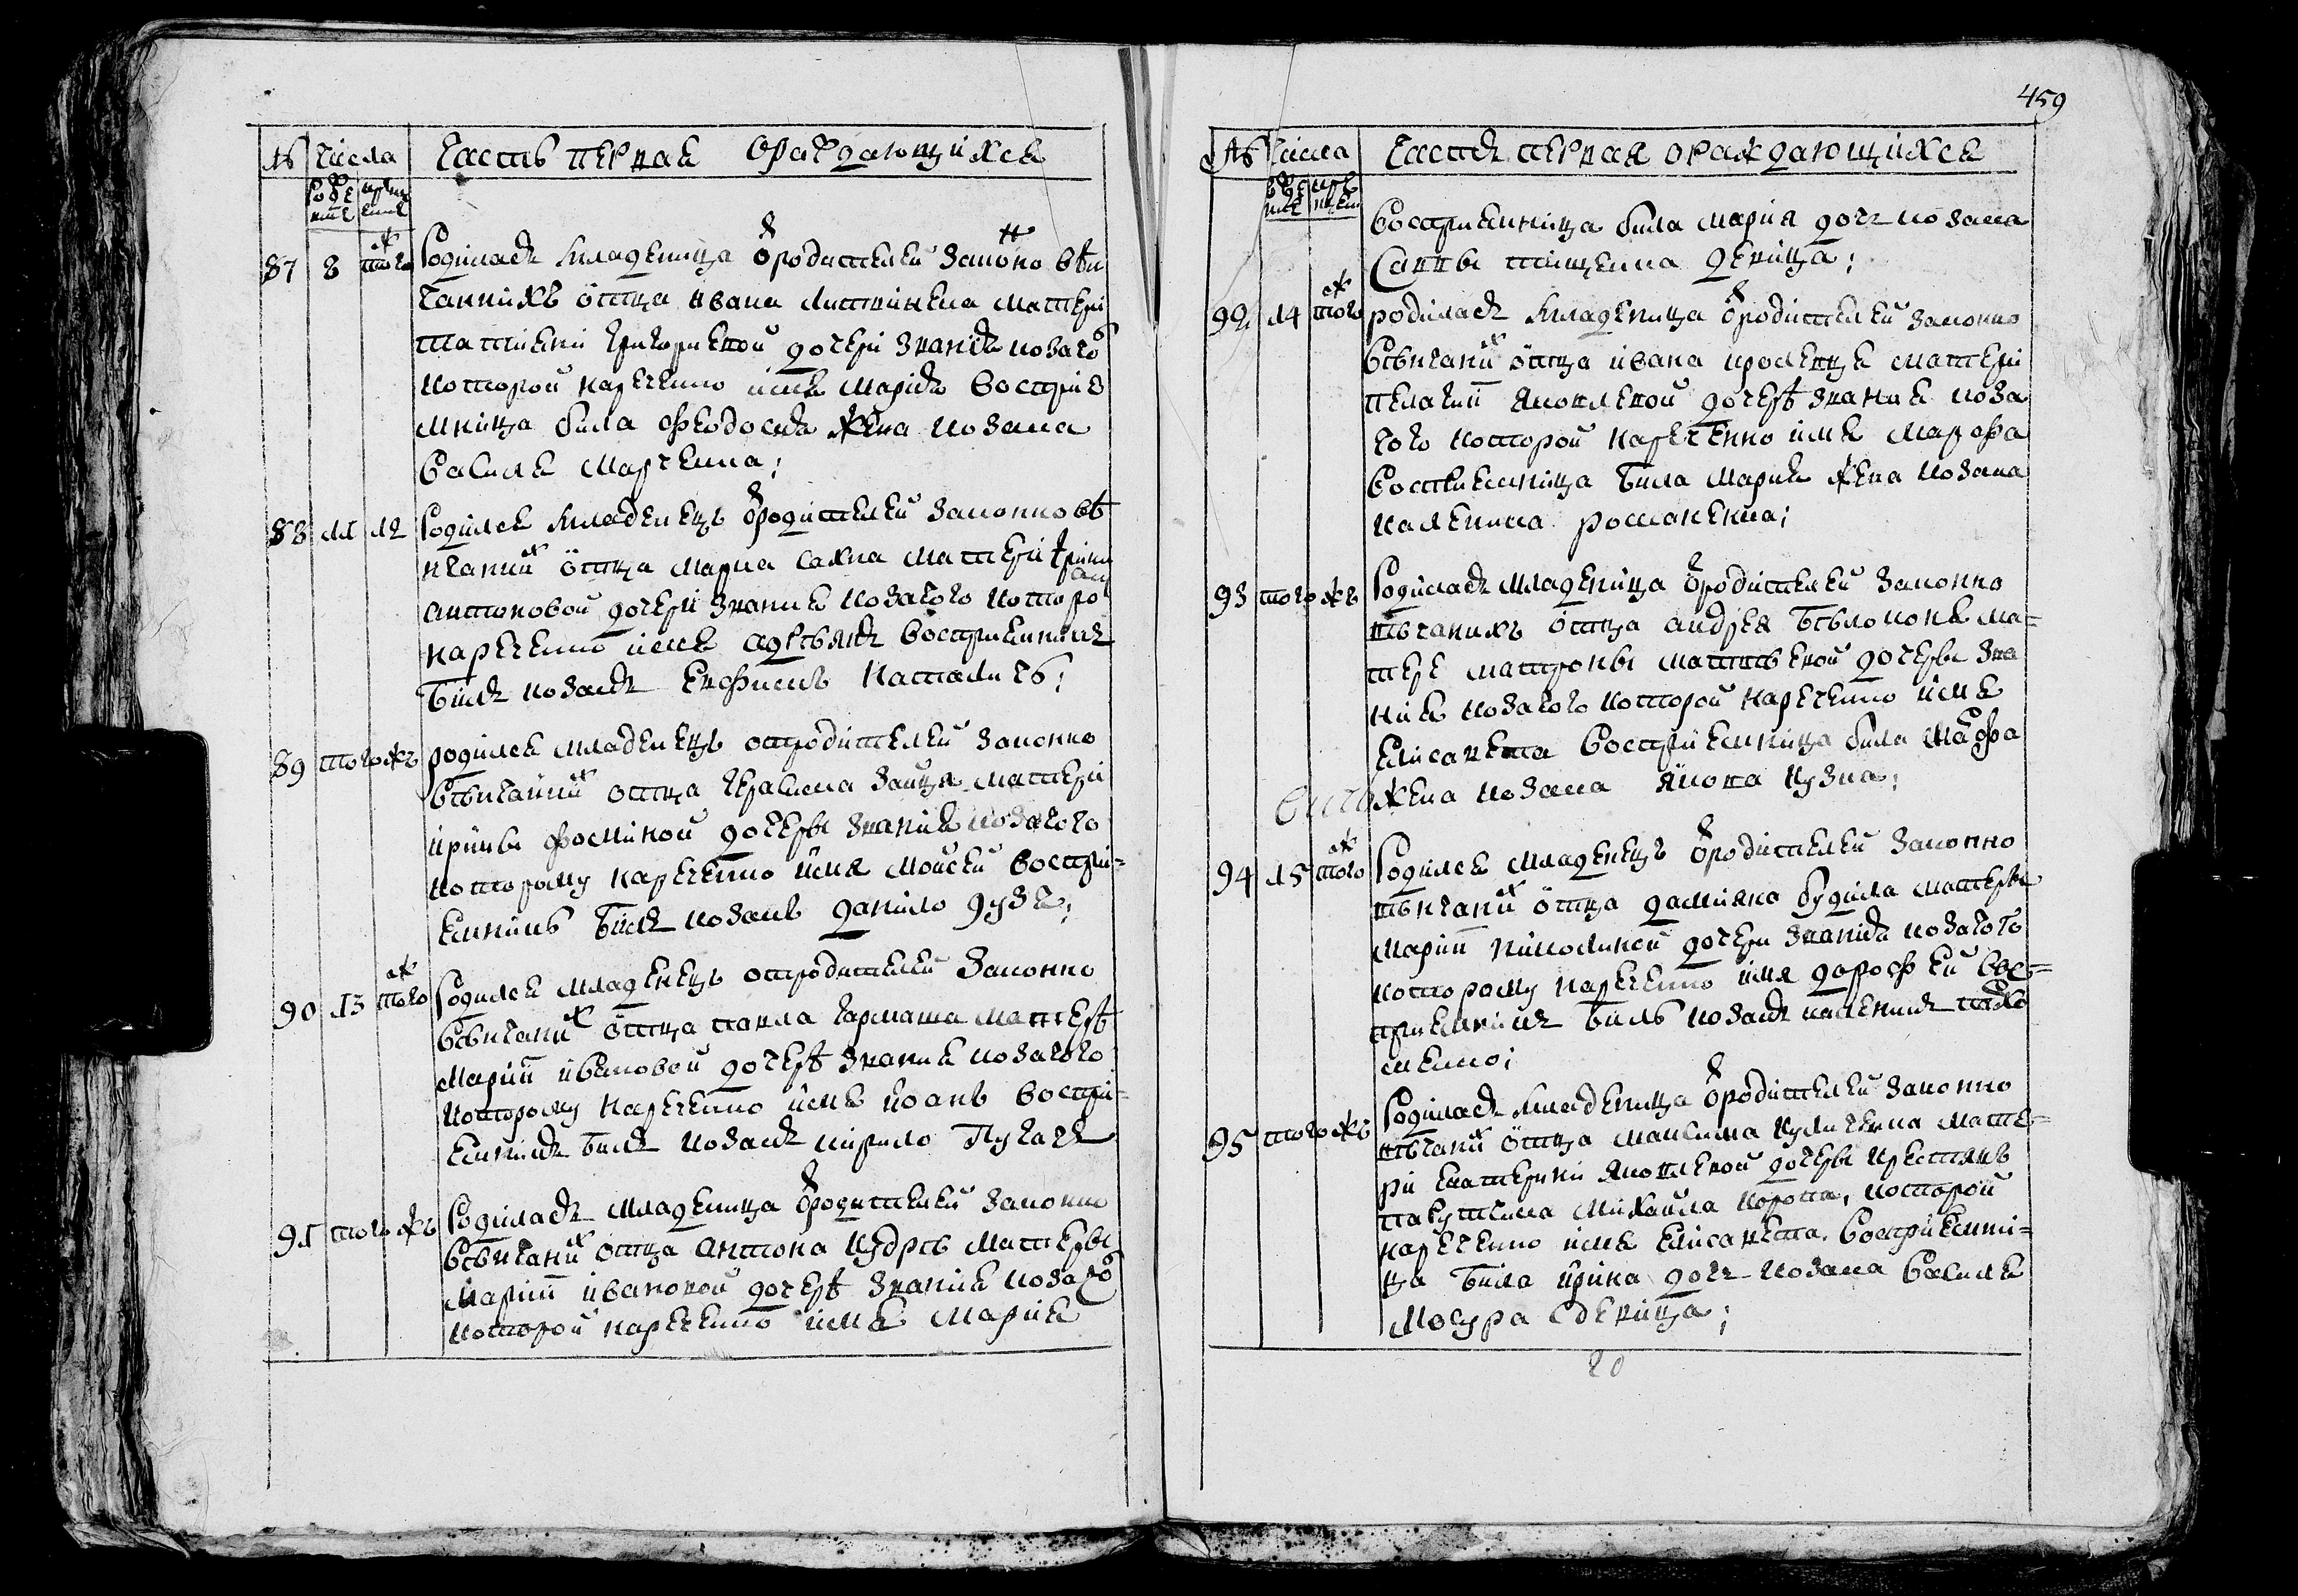 № числа Часть первая о раждающихся
роде крще
ния ения
87 8 того ж Родилась младеница от родителей законно вѣн
чанних отца Ивана Литвинена матери
Татияни Григориевой дочери звания козачо
которой наречено имя Мария восприе
мница била Феодосия жена козака
Василя Марченка;
88 11 12 Родился младенец от родителей законно вѣ
нчаних отца Марка матери Ирини
Антоновой дочери звания козачого котором
наречено имя воспри​емник
бил козак Евфим
89 того жъ родился младенец от родителей законно
вѣнчаних отца Герасима Зайця матери
Ирины Фоминой дочеры звания козачого
которому наречено имя Мойсей воспри-
емник бил козак Данило Дузь;
90 13 того ж Родился младенец от родителей законно
вѣнчаних отца Павла Гармаша матерѣ
Марии Ивановой дочерѣ звания козачого
которому наречено имя Иоан воспри-
емник бил козак Кирило Пугач
91 того жъ Родилась младеница от родителей законно
вѣнчаних отца Антона Кудрѣ матеры
Марии Ивановой дочерѣ звания козачо
которой наречено имя Мария
459
№ числа Часть первая о раждающихся
роде крще
ния ения
восприемница била Мария дочь козака
Саввы Тищенка девица;
92 14 того ж родилась младеница от родителей законно
вѣнчаних отца Ивана матери
Пелагии Яковлевой дочерѣ звания коза
чого которой наречено имя Марфа
восприемница била Мария жена козака
Романенка;
93 того жъ Родилась младеница от родителей законно
вѣнчаних отца Андрея Бѣлоконя ма-
тере Матроны Матвѣевой дочеры зва
ния козачого которой наречено имя
Елисавета восприемница била Марфа
жена козака Якова Кузка;
94 15 того ж Родился младенец от родителей законно
вѣнчаних отца Дамияна Будила матеры
Марии Николиной дочери звания козачого
которому наречено имя Дорофей вос-
приемник бил козак
менко;
95 того жъ Родилась младеница от родителей законно
вѣнчаних отца Максима Куличенка мате-
ри Екатерини Яковлевой дочеры крестянъ
Михайла которой
наречено имя Елисавета. восприемни-
ца била Ирина дочь козака Василя
Мосура девица;
20